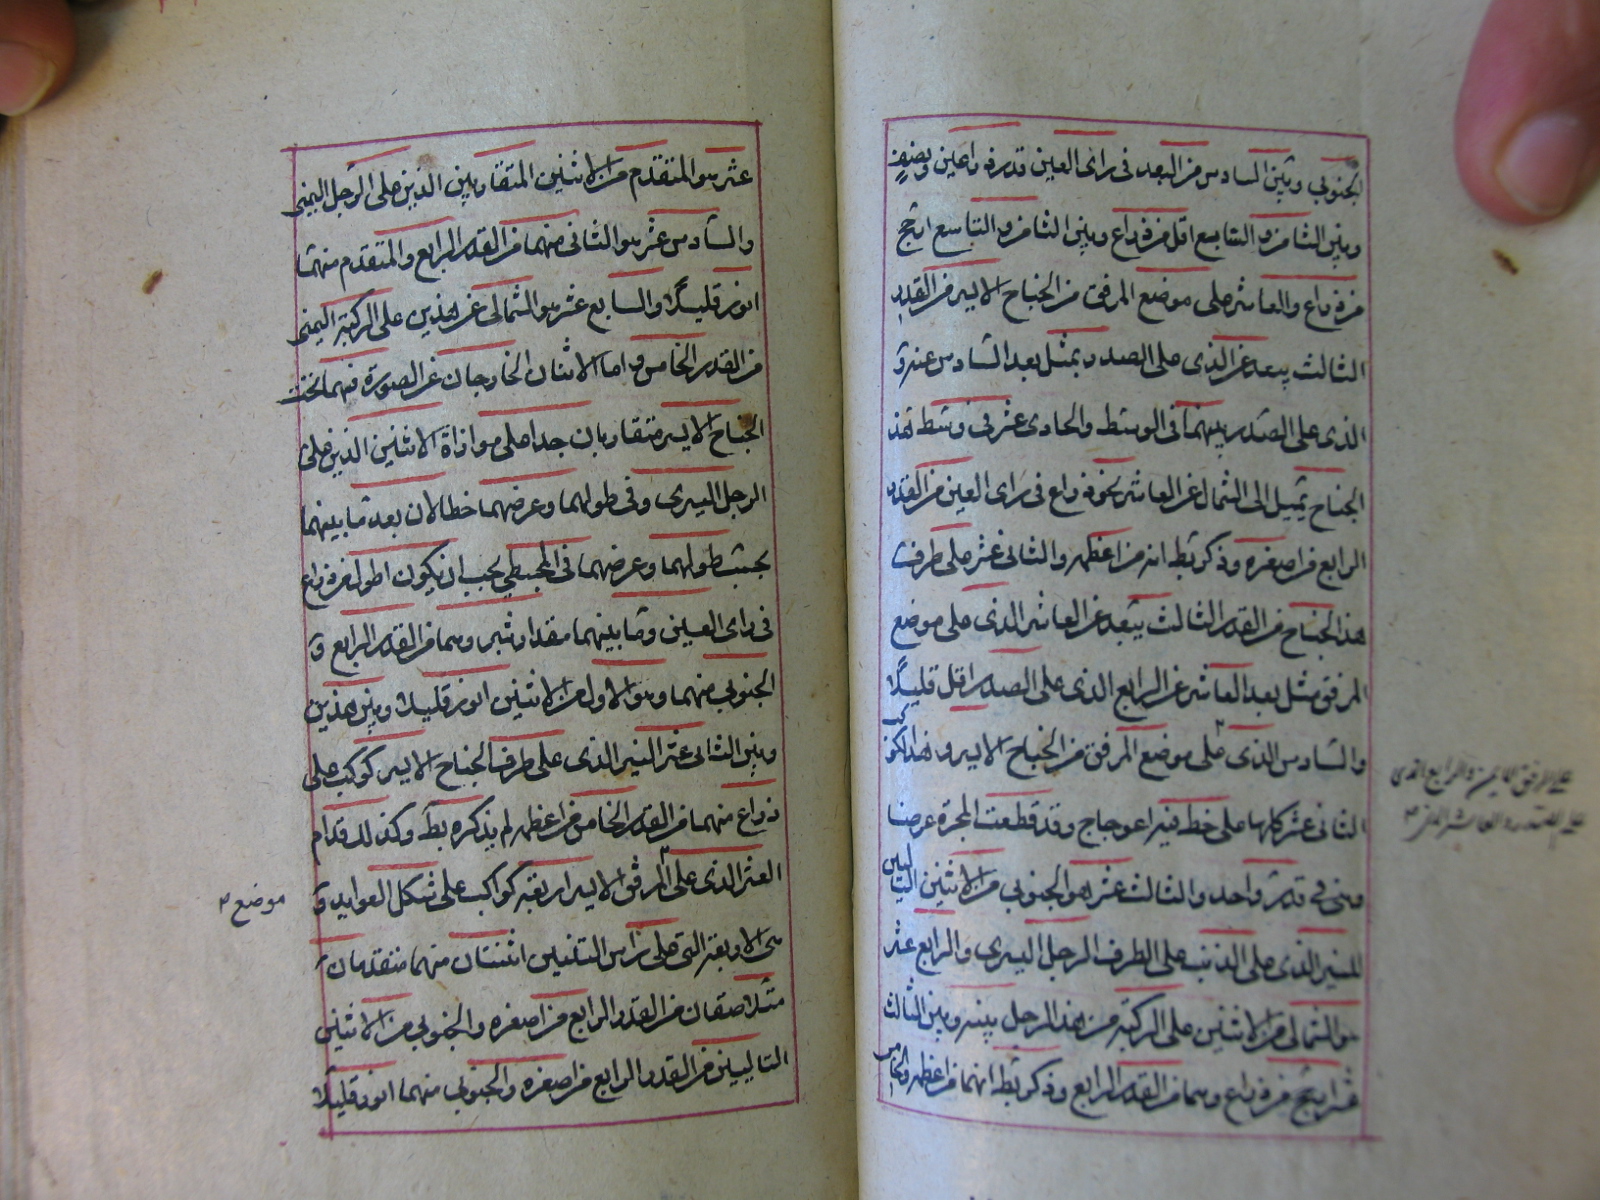 الجنوبي وبين السادس من البعد في رأى العين قدر ذراعين ونصف
وبين الثامن والتاسع اقل من ذراع وبين الثامن والتاسع ارجح
من ذراع والعاشر على موضع المرفق من الجناح الايسر من القدر
الثالث يبعد عن الذى على الصدر بمثل بعد السادس عنه و
الذى على الصدر بينهما فى الوسط والحادى عشر فى وسط هذا
الجناح يميل الى الشمال عن العاشر نحو ذراع فى راى العين من القدر
الرابع من اصغره وذكر بط انه من اعظمه والثانى عشر على طرف
هذا الجناح من القدر الثالث يبعد عن العاشر الذى على موضع
المرفق مثل بعد العاشر عن الرابع الذى على الصدر اقل قليلًا
والسادس الذى على موضع المرفق من الجناح الايسر وهذا كوكب
الثانى عشر كلها على خط فيه اعوجاج وقد قطعت المجرة عرضا
وهى فى قدر واحد والثالث عشر هو الجنوبي من الاثنين التاليين
للنير الذى على الذنب على الطرف الرجل اليسرى والرابع عشر
هو الشمالى من الاثنين على الركبة من هذا الرجل بينه وبين الثالث
عشر ارجح من ذراع وهما من القدر الرابع وذكر بط انهما من اعظمه والخامس
على المرفق الايمن والرابع الذى
على الصدر والعاشر الذى
عشر هو المتقدم من الاثنين المتقاربين الذين على الرجل اليمنى
والسادس عشر هو الثانى منهما من القدر الرابع والمتقدم منهما
انور قليلًا والسابع عشر هو الشمالى عن هذين على الركبة اليمنى
من القدر الخامس واما الاثنان الخارجان عن الصورة فهما تحت
الجناح الايسر متقاربان جدا على موازاة الاثنين الذين على
الرجل اليسرى وفى طولهما وعرضهما خطا لان بعد ما بينهما
بحسب طولهما وعرضهما فى المجسطي يجب ان يكون اطول من ذراع
فى راى العين وما بينهما مقدار شبر وهما من القدر الرابع و
الجنوبي منهما وهو الاول من الاثنين انور قليلا وبين هذين
وبين الثانى عشر النير الذى على طرف الجناح الايسر كوكب على
ذراع منهما من القدر الخامس من اعظمه لم يذكره بط وكذلك قدام
العشر الذى على المرفق الايسر اربعة كواكب على شكل العوايد و
هى الاربعة التى على راس التنين اثنتان منهما متقدمان
متلاصقان من القدر الرابع من اصغره والجنوبي من الاثنين
التاليين من القدر الرابع من اصغره والجنوبي منهما انور قليلًا
موضع